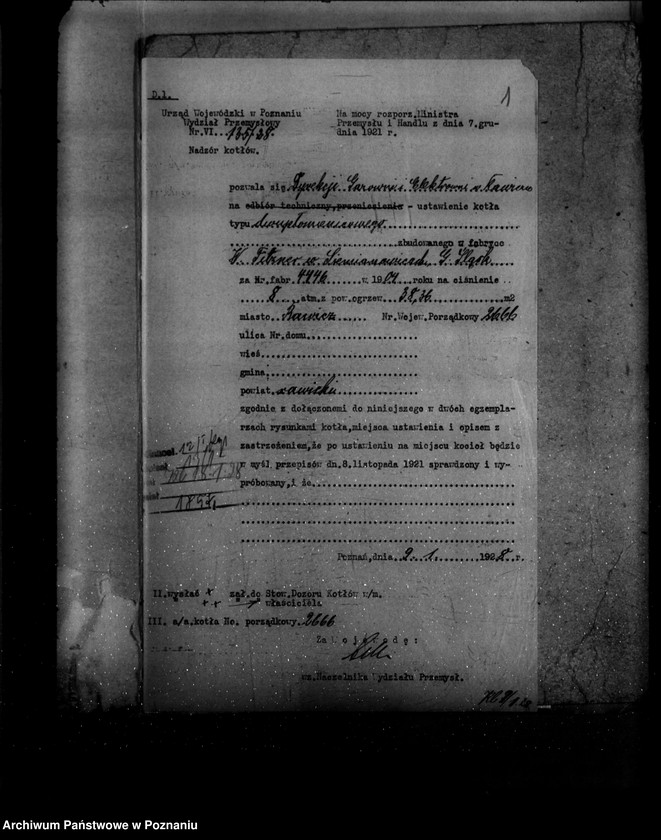 D.1.
1
Urząd Wojewódzki w Poznaniu
Wydział Przemysłowy
Nr.VI. 135/28.
Nadzór kotłów.
Na mocy rozporz.Ministra
Przemysłu i Handlu z dnia 7.gru-
dnia 1921 r.
pozwala się
na odbiór techniczny,przeniesienie - ustawienie kotła
typu dwupłomienicowego
zbudowanego w fabryce
W. Fitzner w. Siemianowicach G. Śląsk
za Nr.fabr. 4446 w 1904 roku na ciśnienie
8 atm.z pow.ogrzew. 38,36 m2
miasto Rawicz Nr.Wojew.Porządkowy 2666
ulica Nr.domu
wieś
gmina
powiat rawicki
zgodnie z dołączonemi do niniejszego w dwóch egzempla-
rzach rysunkami kotła,miejsca ustawienia i opisem z
zastrzeżeniem,że po ustawieniu na miejscu kocioł będzie
w myśl przepisów dn.8.listopada 1921 sprawdzony i wy-
próbowany,i że
Poznań,dnia 9. 1. 1928. r.
II.wysłać + zał.do Stow.Dozoru Kotłów w/m.
++ właściciela
III. a/a.kotła No. porządkowy. 2666
Za Wojewodę:
wz.Naczelnika Wydziału Przemysł.
Archiwum Państwowe w Poznaniu